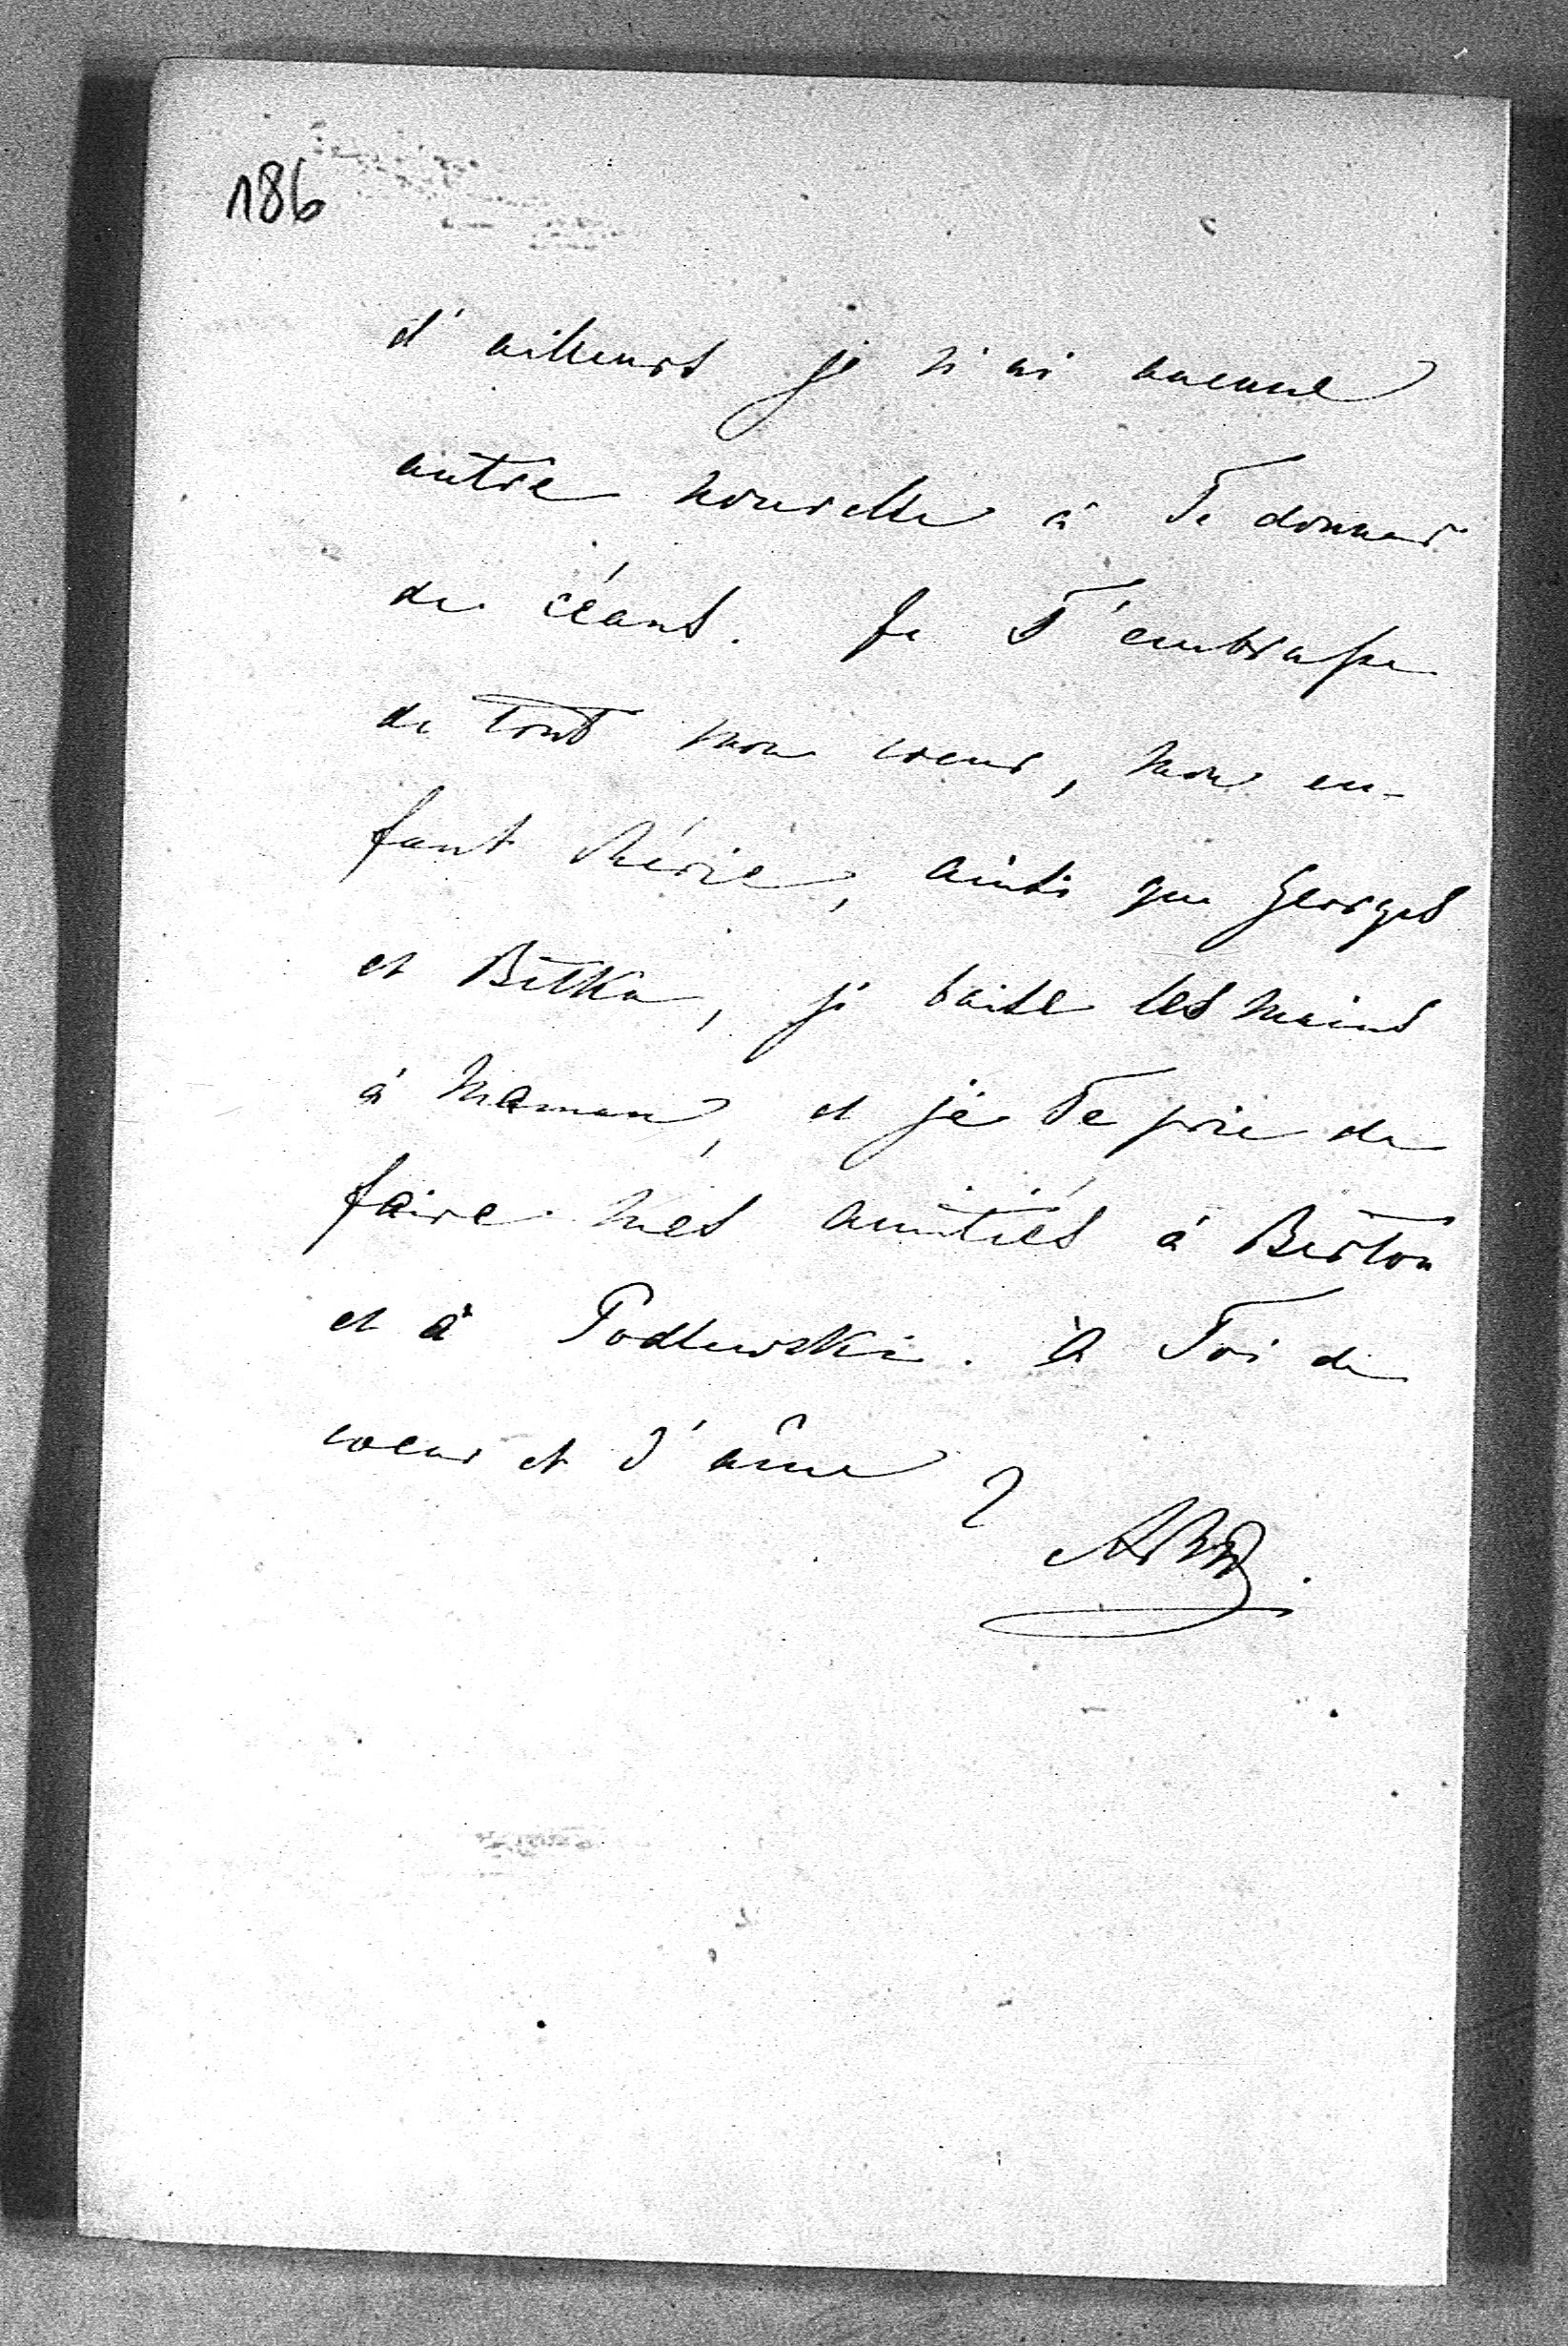 186
d'ailleurs je n'ai aucune
autre nouvelle à Te donner
de céans. Je T'embrasse
de tout mon coeur, mon en-
fant chérie, ainsi que Georges
et Betka, je baise les mains
à Maman, et je Te prie de
faire mes amitiés à Berton
et à Podlewski. à Toi de
coeur et d'âme